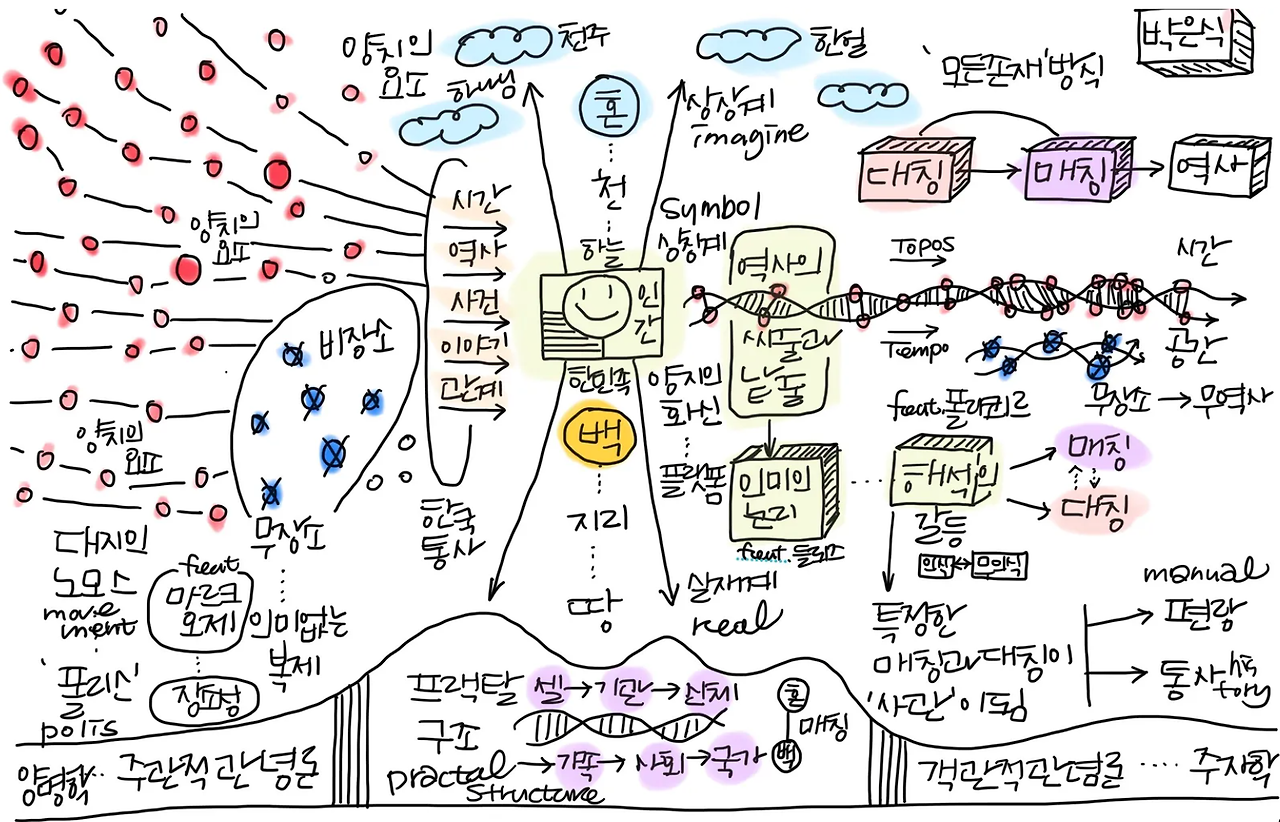 양치의
요포
천주
하쌩
혼
천
하늘
한얼
상상계
imagine
'모든존재'방식
박은식
대칭
매칭
역사
양치의
요포
시간
역사
사건
이야기
관계
한국
통사
인
간
한민족
백
지리
땅
Symbol
상칭계
역사의
씨줄과
날줄
양치의
화신
플랫폼
의미의
논리
feat.들뢰즈
실재계
real
Topos
시간
Tempo
공간
feat.폴리뢰르
무장소
무역사
해석의
갈등
매칭
대칭
의식
무의식
특정한
매칭과 대칭이
'사관'이됨
manual
편람
통사
history
비장소
무장소
의미없는
복제
양치의
요포
대지의
노모스
movement
'폴리스'
polis
feat
마르크
오제
장소성
프랙탈
구조
practal
structure
셀
기관
신체
가족
사회
국가
혼
백
매칭
양명학
주관적 관념론
객관적관념론
주자학